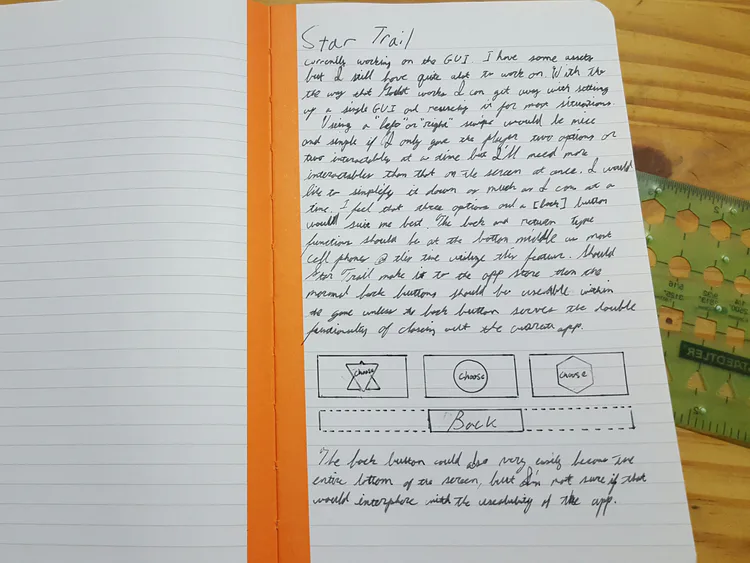 Star Trail
Currently working on the GUI. I have some assets
but I still have quite alot to work on. With the
the way that works I can get away with setting
up a single GUI and reusing it for most situations.
Using a "left" or "right" swipe would be nice
and simple if I only gave the player two options or
two interactables at a time but I'll need more
interactables than that on the screen at once. I would
like to simplify it down as much as I can at a
time. I feel that three options and a [back] button
would suit me best. The back and return type
functions should be at the bottom middle as most
cell phones @ this time utilize this feature. Should
Star Trail make it to the app store then the
normal back buttons should be useable within
the game unless the back button serves the double
functionality of closing out the app.
choose choose choose
Back
The back button could also very easily become the
entire bottom of the screen, but I'm not sure if that
would interphere with the useability of the app.
STAEDTLER